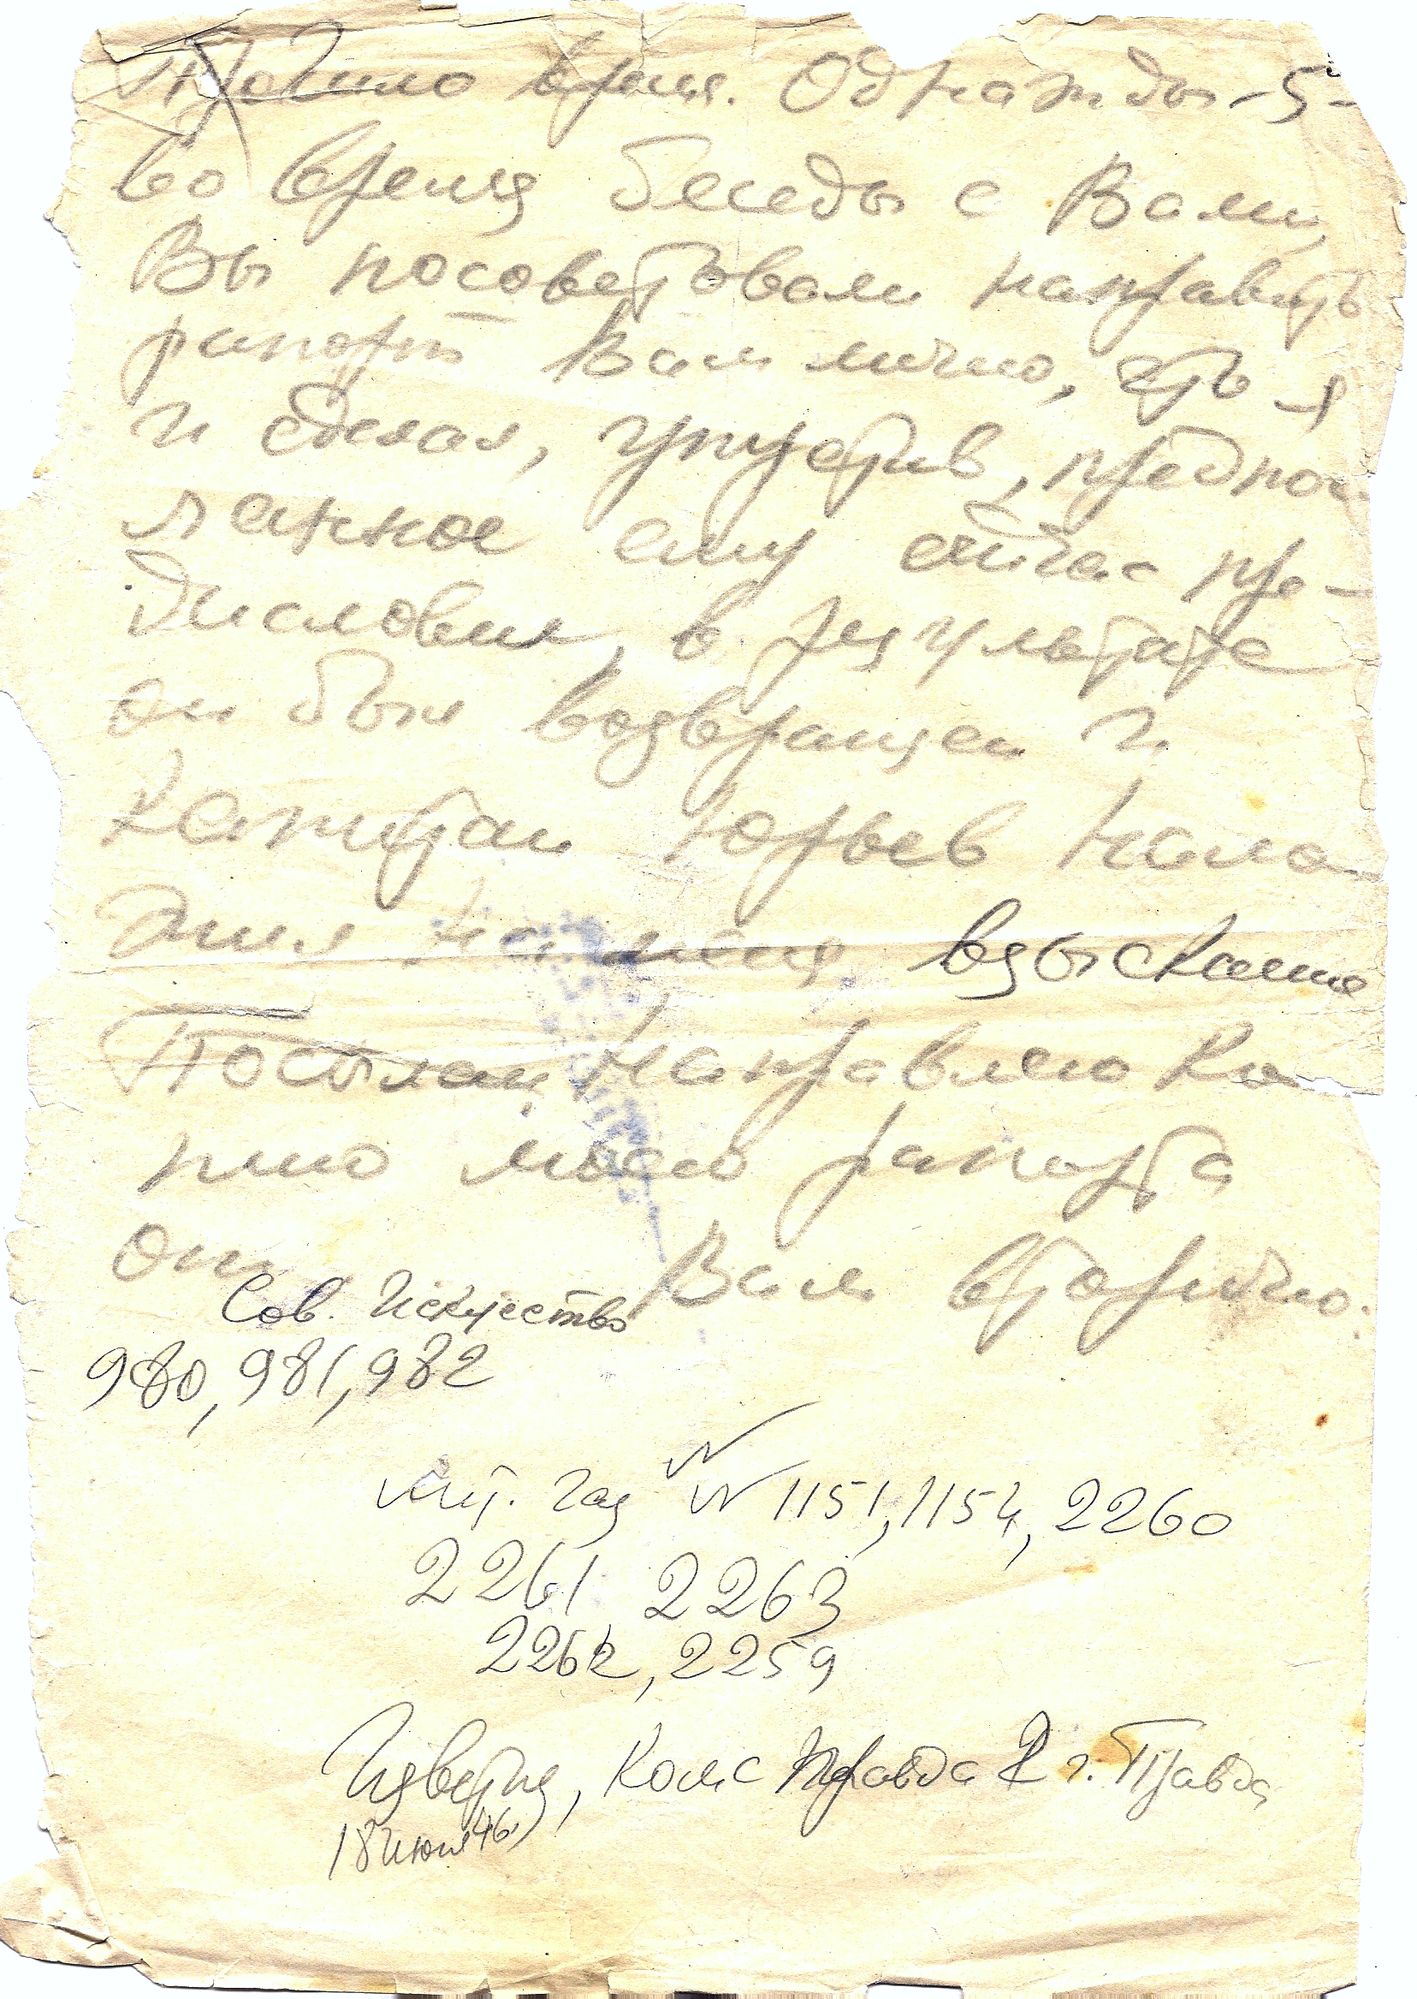 Прошло время. Однажды -5-
во время беседы с Вами,
Вы посоветовали направить
рапорт Вам лично, что я
и сделал, упустив, предпос
ланное ему сейчас пре-
дисловие, в результате
он был возвращен и
Капитан Юрьев нало
жил на меня взыскание
Посылаю Направляю Ко
пию моего рапорта
он Вам вторично.
Сов. Искусство
980, 981, 982
Лит. Газ NN 1151, 1154, 2260
2261 2263
2262, 2259
Известия, Комс Правда 2 г. Правда
18 июля 46